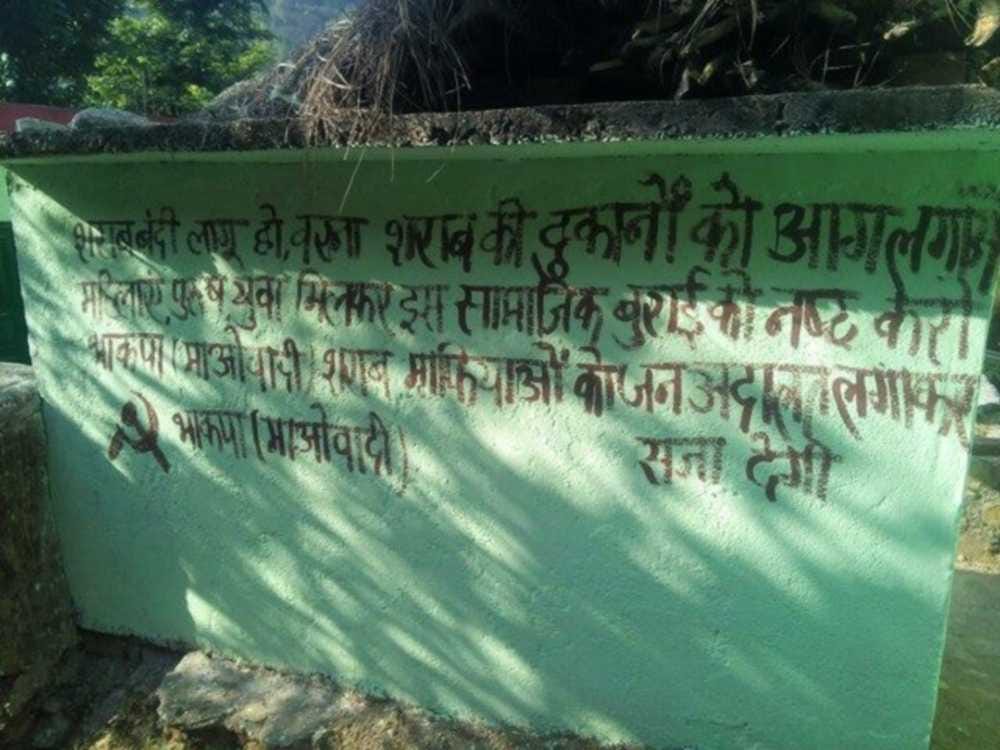 शराबबंदी लागू हो, वरना शराब की दुकानों को आग लगाओ
महिलाएं, पुरुष, युवा मिलकर इस सामाजिक बुराई को नष्ट करो
भाकपा (माओवादी) शराब माफियाओं को जन अदालत लगाकर
सजा देगी
भाकपा (माओवादी)